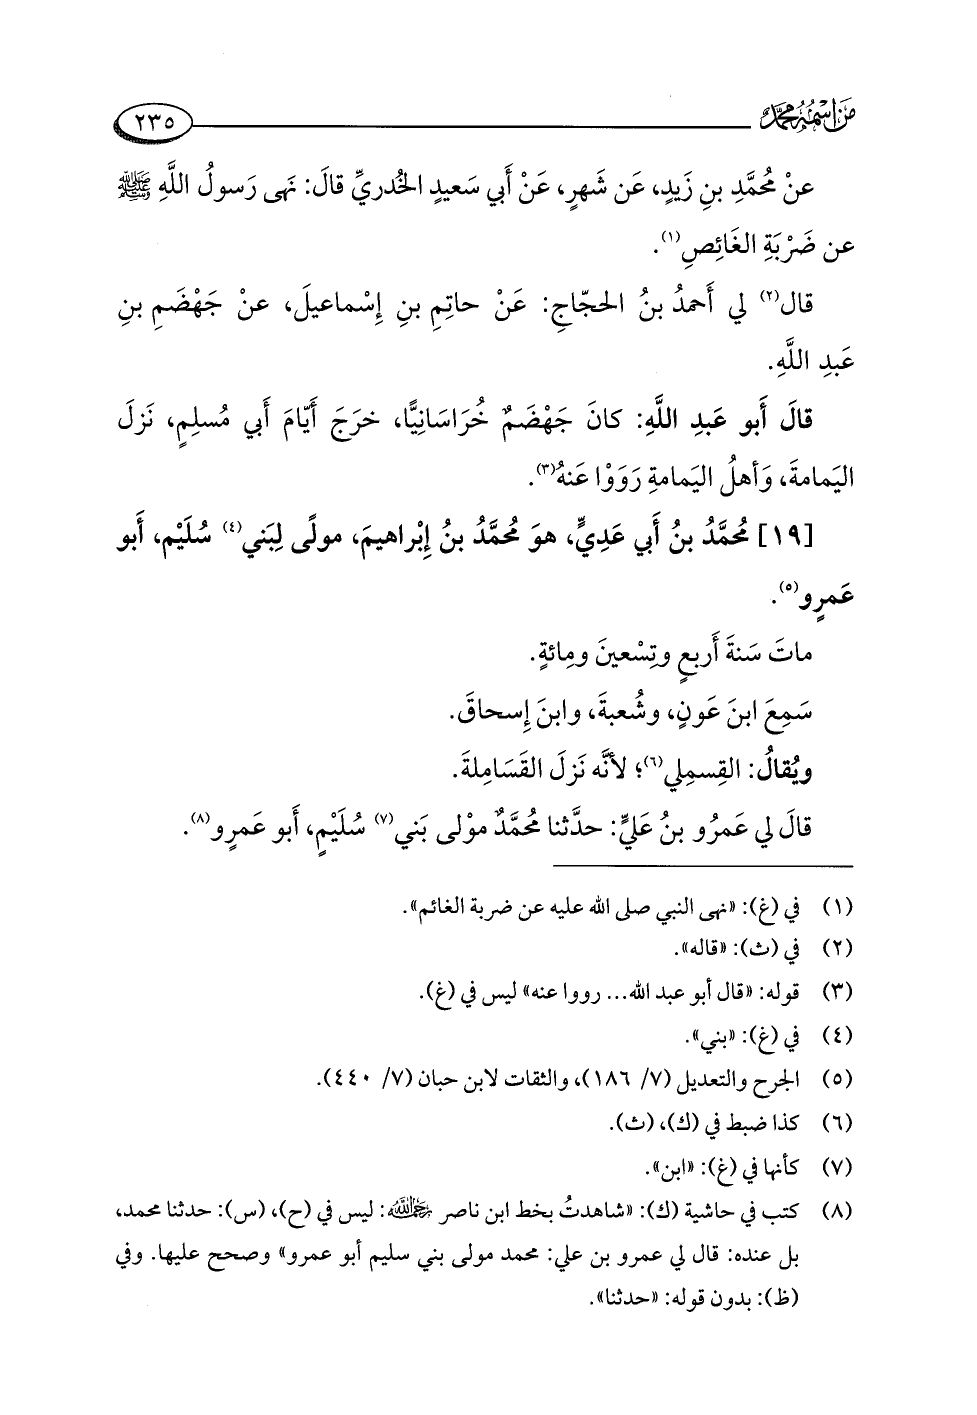 مَن اسْمُهُ محمَّد
٢٣٥
عنْ مُحمَّدِ بنِ زَيدٍ، عَن شَهرٍ، عَنْ أَبي سَعيدٍ الخُدريِّ قالَ: نَهى رَسولُ اللَّهِ ﷺ
عن ضَرْبَةِ الغَائِصِ(١).
قال(٢) لي أَحمدُ بنُ الحجّاجِ: عَنْ حاتِمِ بنِ إِسْماعيلَ، عنْ جَهْضَمِ بنِ
عَبدِ اللَّهِ.
قالَ أَبو عَبدِ اللَّهِ: كانَ جَهْضَمٌ خُرَاسَانِيًّا، خرَجَ أَيّامَ أَبي مُسلِمٍ، نَزلَ
اليَمامةَ، وَأهلُ اليَمامةِ رَوَوْا عَنهُ(٣).
[١٩] مُحمَّدُ بنُ أَبي عَدِيٍّ، هوَ مُحمَّدُ بنُ إِبْراهيمَ، مولًى لِبَني(٤) سُلَيْم، أَبو
عَمرٍو(٥).
ماتَ سَنةَ أَربعٍ وتِسْعينَ ومِائةٍ.
سَمِعَ ابنَ عَونٍ، وشُعبةَ، وابنَ إِسحاقَ.
ويُقالُ: القِسمِلي(٦)؛ لأنَّه نَزلَ القَسَامِلةَ.
قالَ لي عَمرُو بنُ عَليٍّ: حدَّثنا مُحمَّدٌ موْلى بَني(٧) سُلَيْمٍ، أَبو عَمرٍو(٨).
(١) في (غ): «نهى النبي صلى الله عليه عن ضربة الغائم».
(٢) في (ث): «قاله».
(٣) قوله: «قال أبو عبد الله... رووا عنه» ليس في (غ).
(٤) في (غ): «بني».
(٥) الجرح والتعديل (٧/ ١٨٦)، والثقات لابن حبان (٧/ ٤٤٠).
(٦) كذا ضبط في (ك)، (ث).
(٧) كأنها في (غ): «ابن».
(٨) كتب في حاشية (ك): «شاهدتُ بخط ابن ناصر رَحِمَهُ اللَّهُ: ليس في (ح)، (س): حدثنا محمد،
بل عنده: قال لي عمرو بن علي: محمد مولى بني سليم أبو عمرو» وصحح عليها. وفي
(ظ): بدون قوله: «حدثنا».